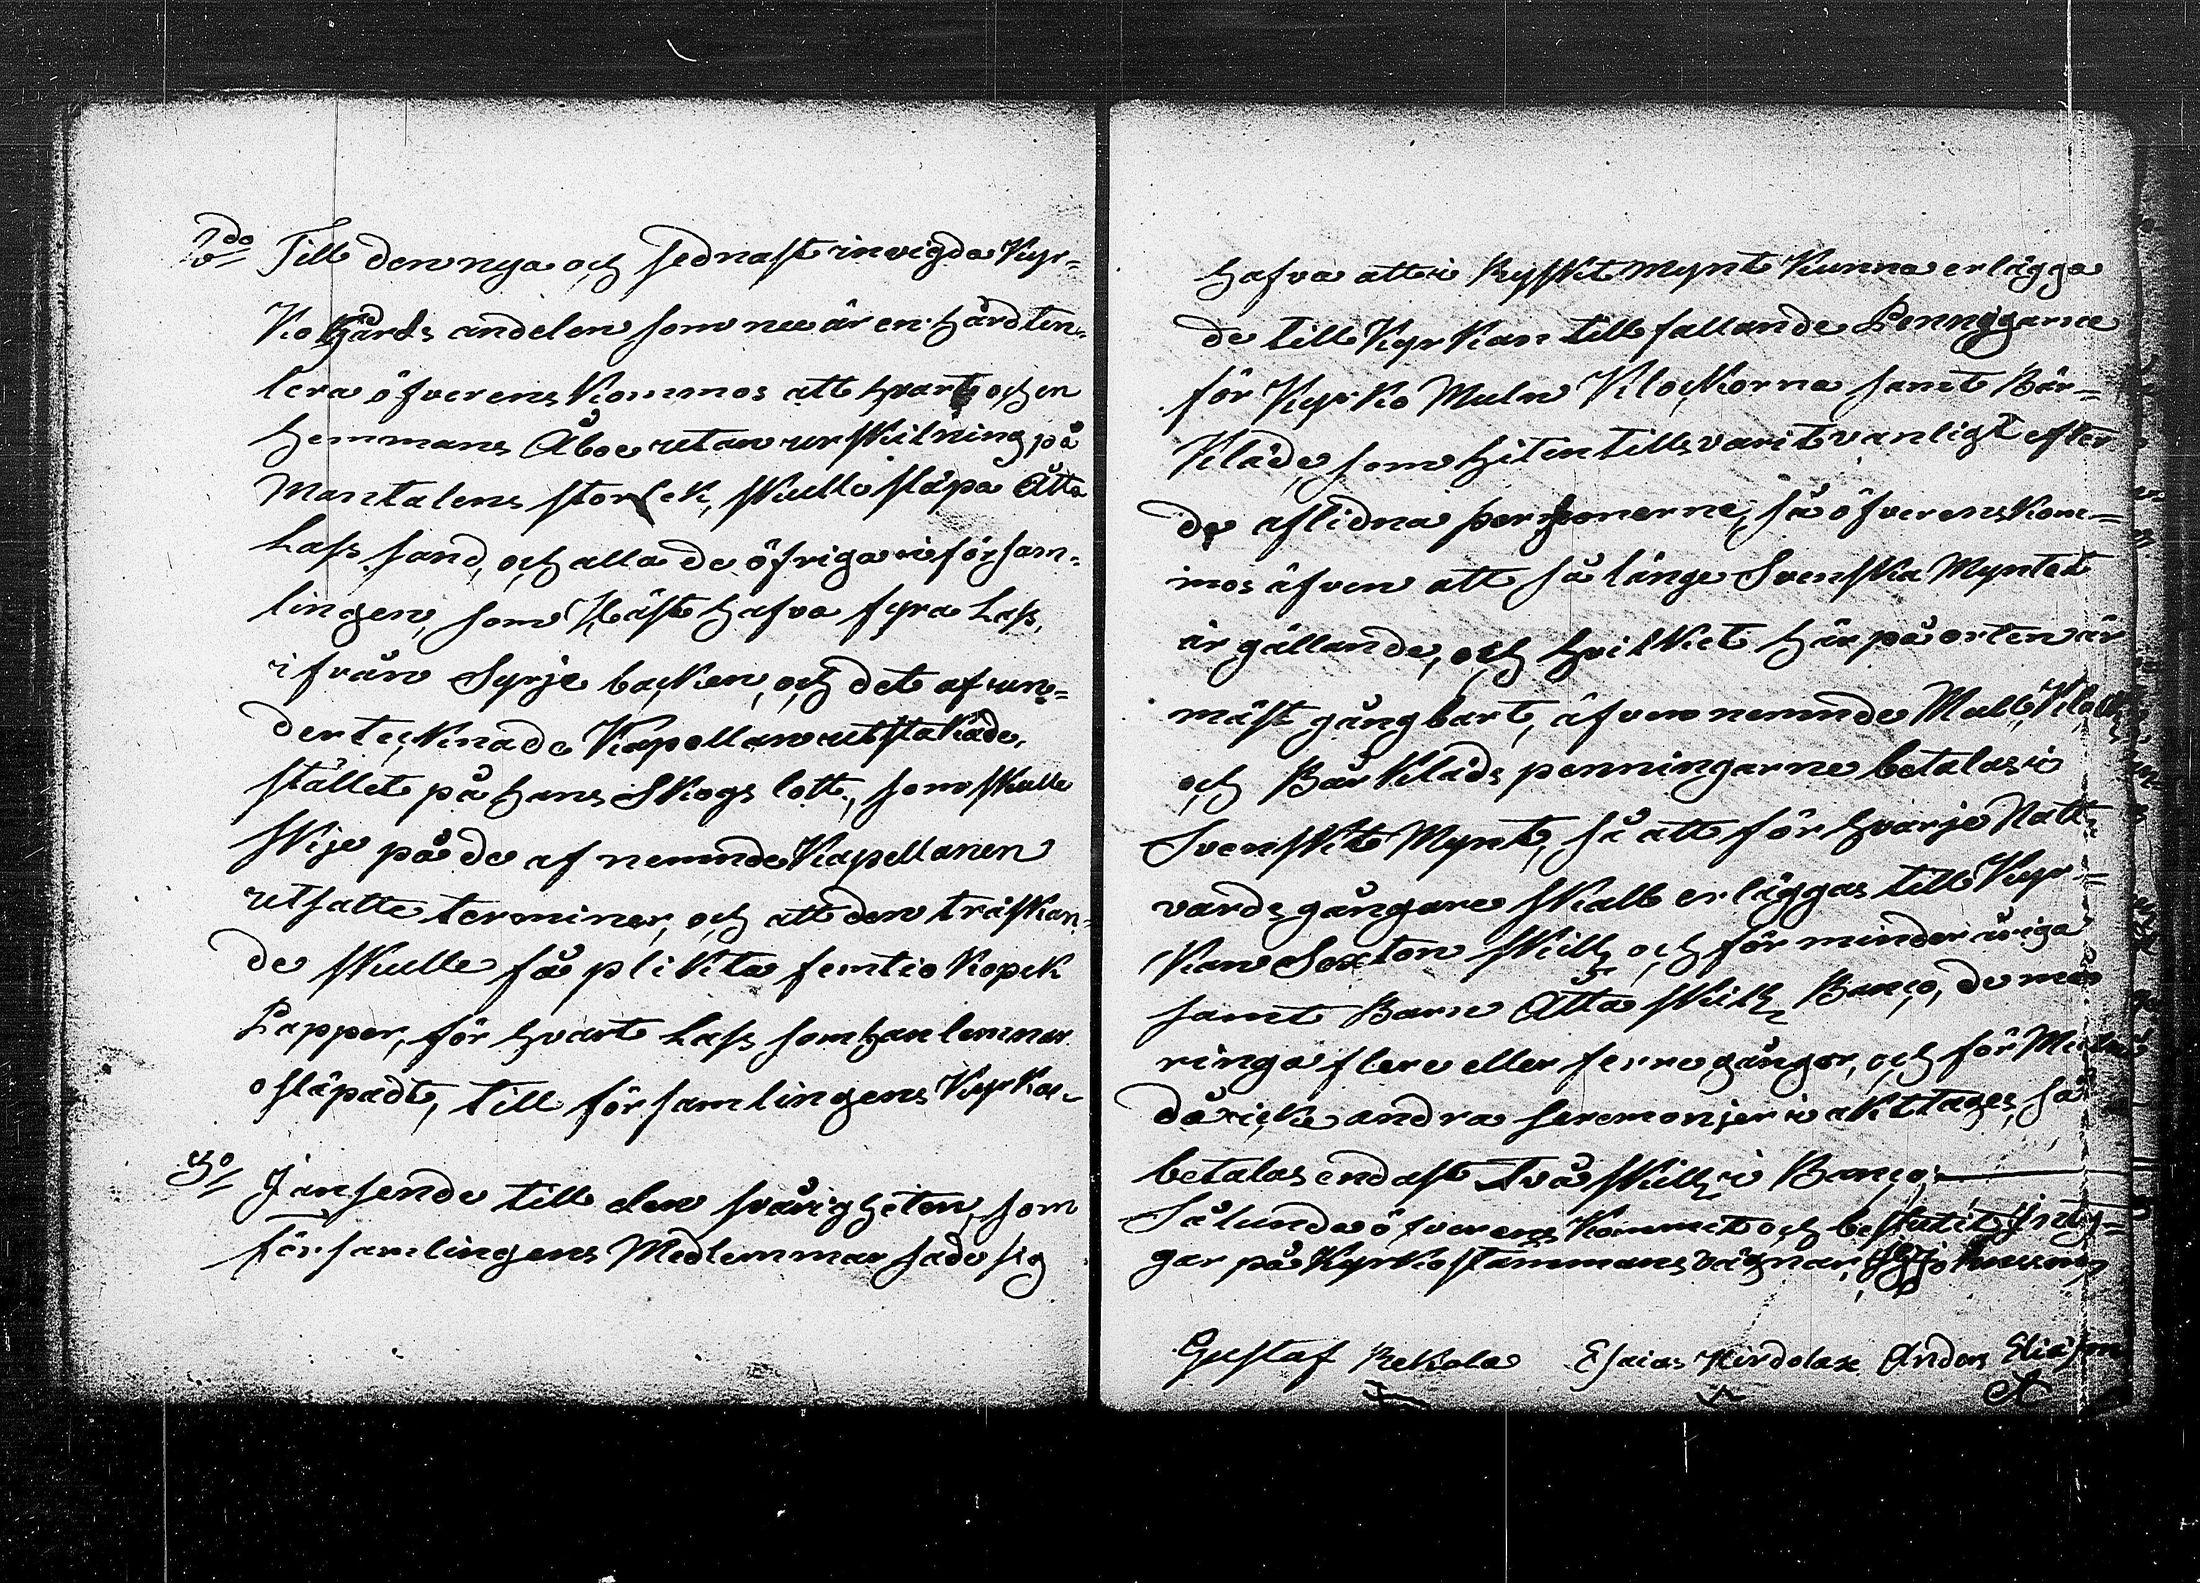 2do Till den nya och sednast invigda Kyr=
Ko Gårds andelen som nu är en hård ten=
lera öfverens Kommos att hvart och en
hemmans Åboe utan urskilning på
Mantalens storlek, skulle släpa Åtta
Lass sand, och alla de öfriga i försam=
lingen, som Häst hafva fyra Lass,
ifrån Syrje backen, och det af un=
dertecknade Kapellan utstakade,
stället på hans Skogs lott, som skulle
skje på de af nemnde Kapellanen
utsatte terminer, och att den träskan=
de skulle få plikta femtio Kopek
Papper, för hvart Lass som han lemnar
osläpadt, till församlingens Kyrka.
3o Jansende till den svårigheten, som
församlingens Medlemmar sade sig
hafva att i Rysskt mynt Kunna erlägga
de till Kyrkan till fallande Penngarne
för Kyrko Muln Klockorna samt Bår=
Kläde, som hitintills varit vanligt efter
de aflidna personerne, så öfverens Kom=
mos äfven att så länge Svenska Myntet
är gällande, och hvilket här på orten är
mäst gångbart, äfven nemnde Mull, Klock
och Bår Kläds penningarne betalas i
Svenskt Mynt, så att för hvarje Natt=
vards gångare skall erläggas till Kyr=
kan Sexton Skill och för minderåriga
samt Barn Åtta Skill Banco, de må
ringa flere eller ferre gånger, och för Muln
då icke andra seremonjer i akttages, så
betalas endast Två Skill i Banco.
Sålunda öfverens Kommit och beslutit Inty=
gar på Kyrkostämmans vägnar,
Gustaf Rekola Esaias Hirdolax Anders Eliasson